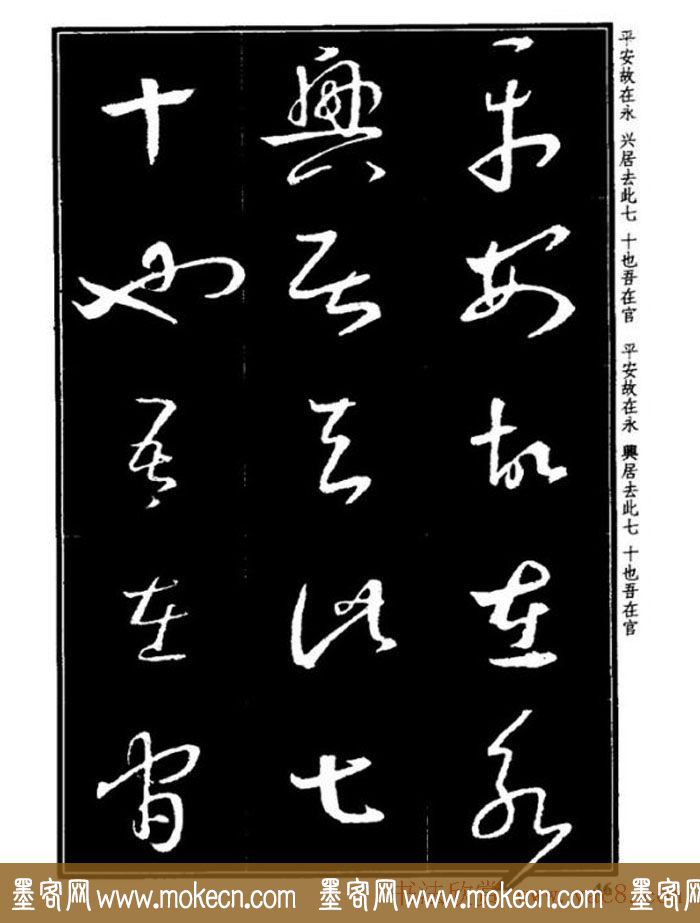 平安故在永
興居去此七
十也吾在官
平安故在永 兴居去此七 十也吾在官
平安故在永 興居去此七 十也吾在官
墨客网 www.mokecn.com 墨客网 www.mokecn.com 墨客网